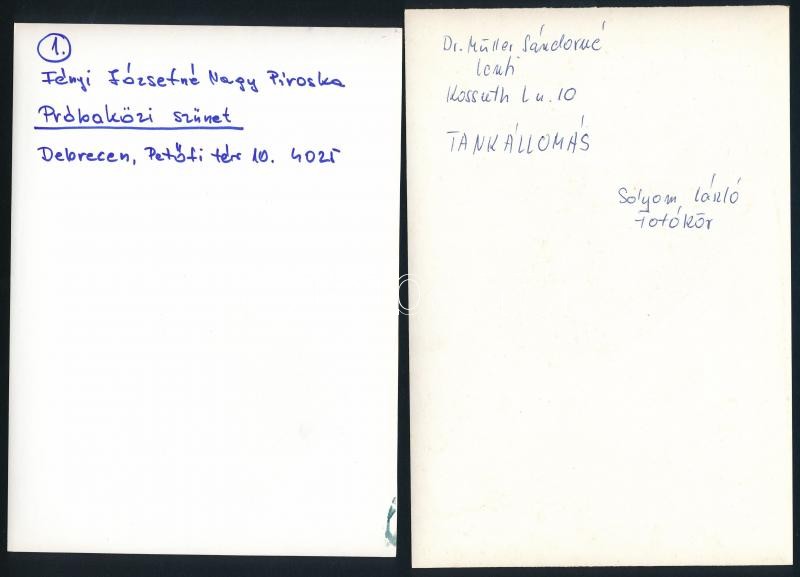 1.
Fényi Józsefné Nagy Piroska
Próbaközi szünet
Debrecen, Petőfi tér 10. 4025
Dr. Müller Sándorné
Lenti
Kossuth L u. 10
TANKÁLLOMÁS
Sólyom László
Fotókör